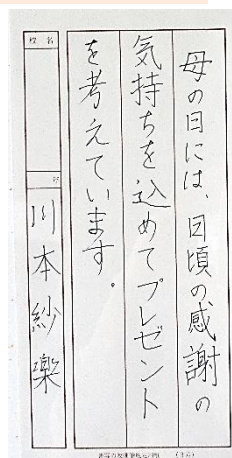 母の日には、日頃の感謝の
気持ちを込めてプレゼント
を考えています。
川本紗楽